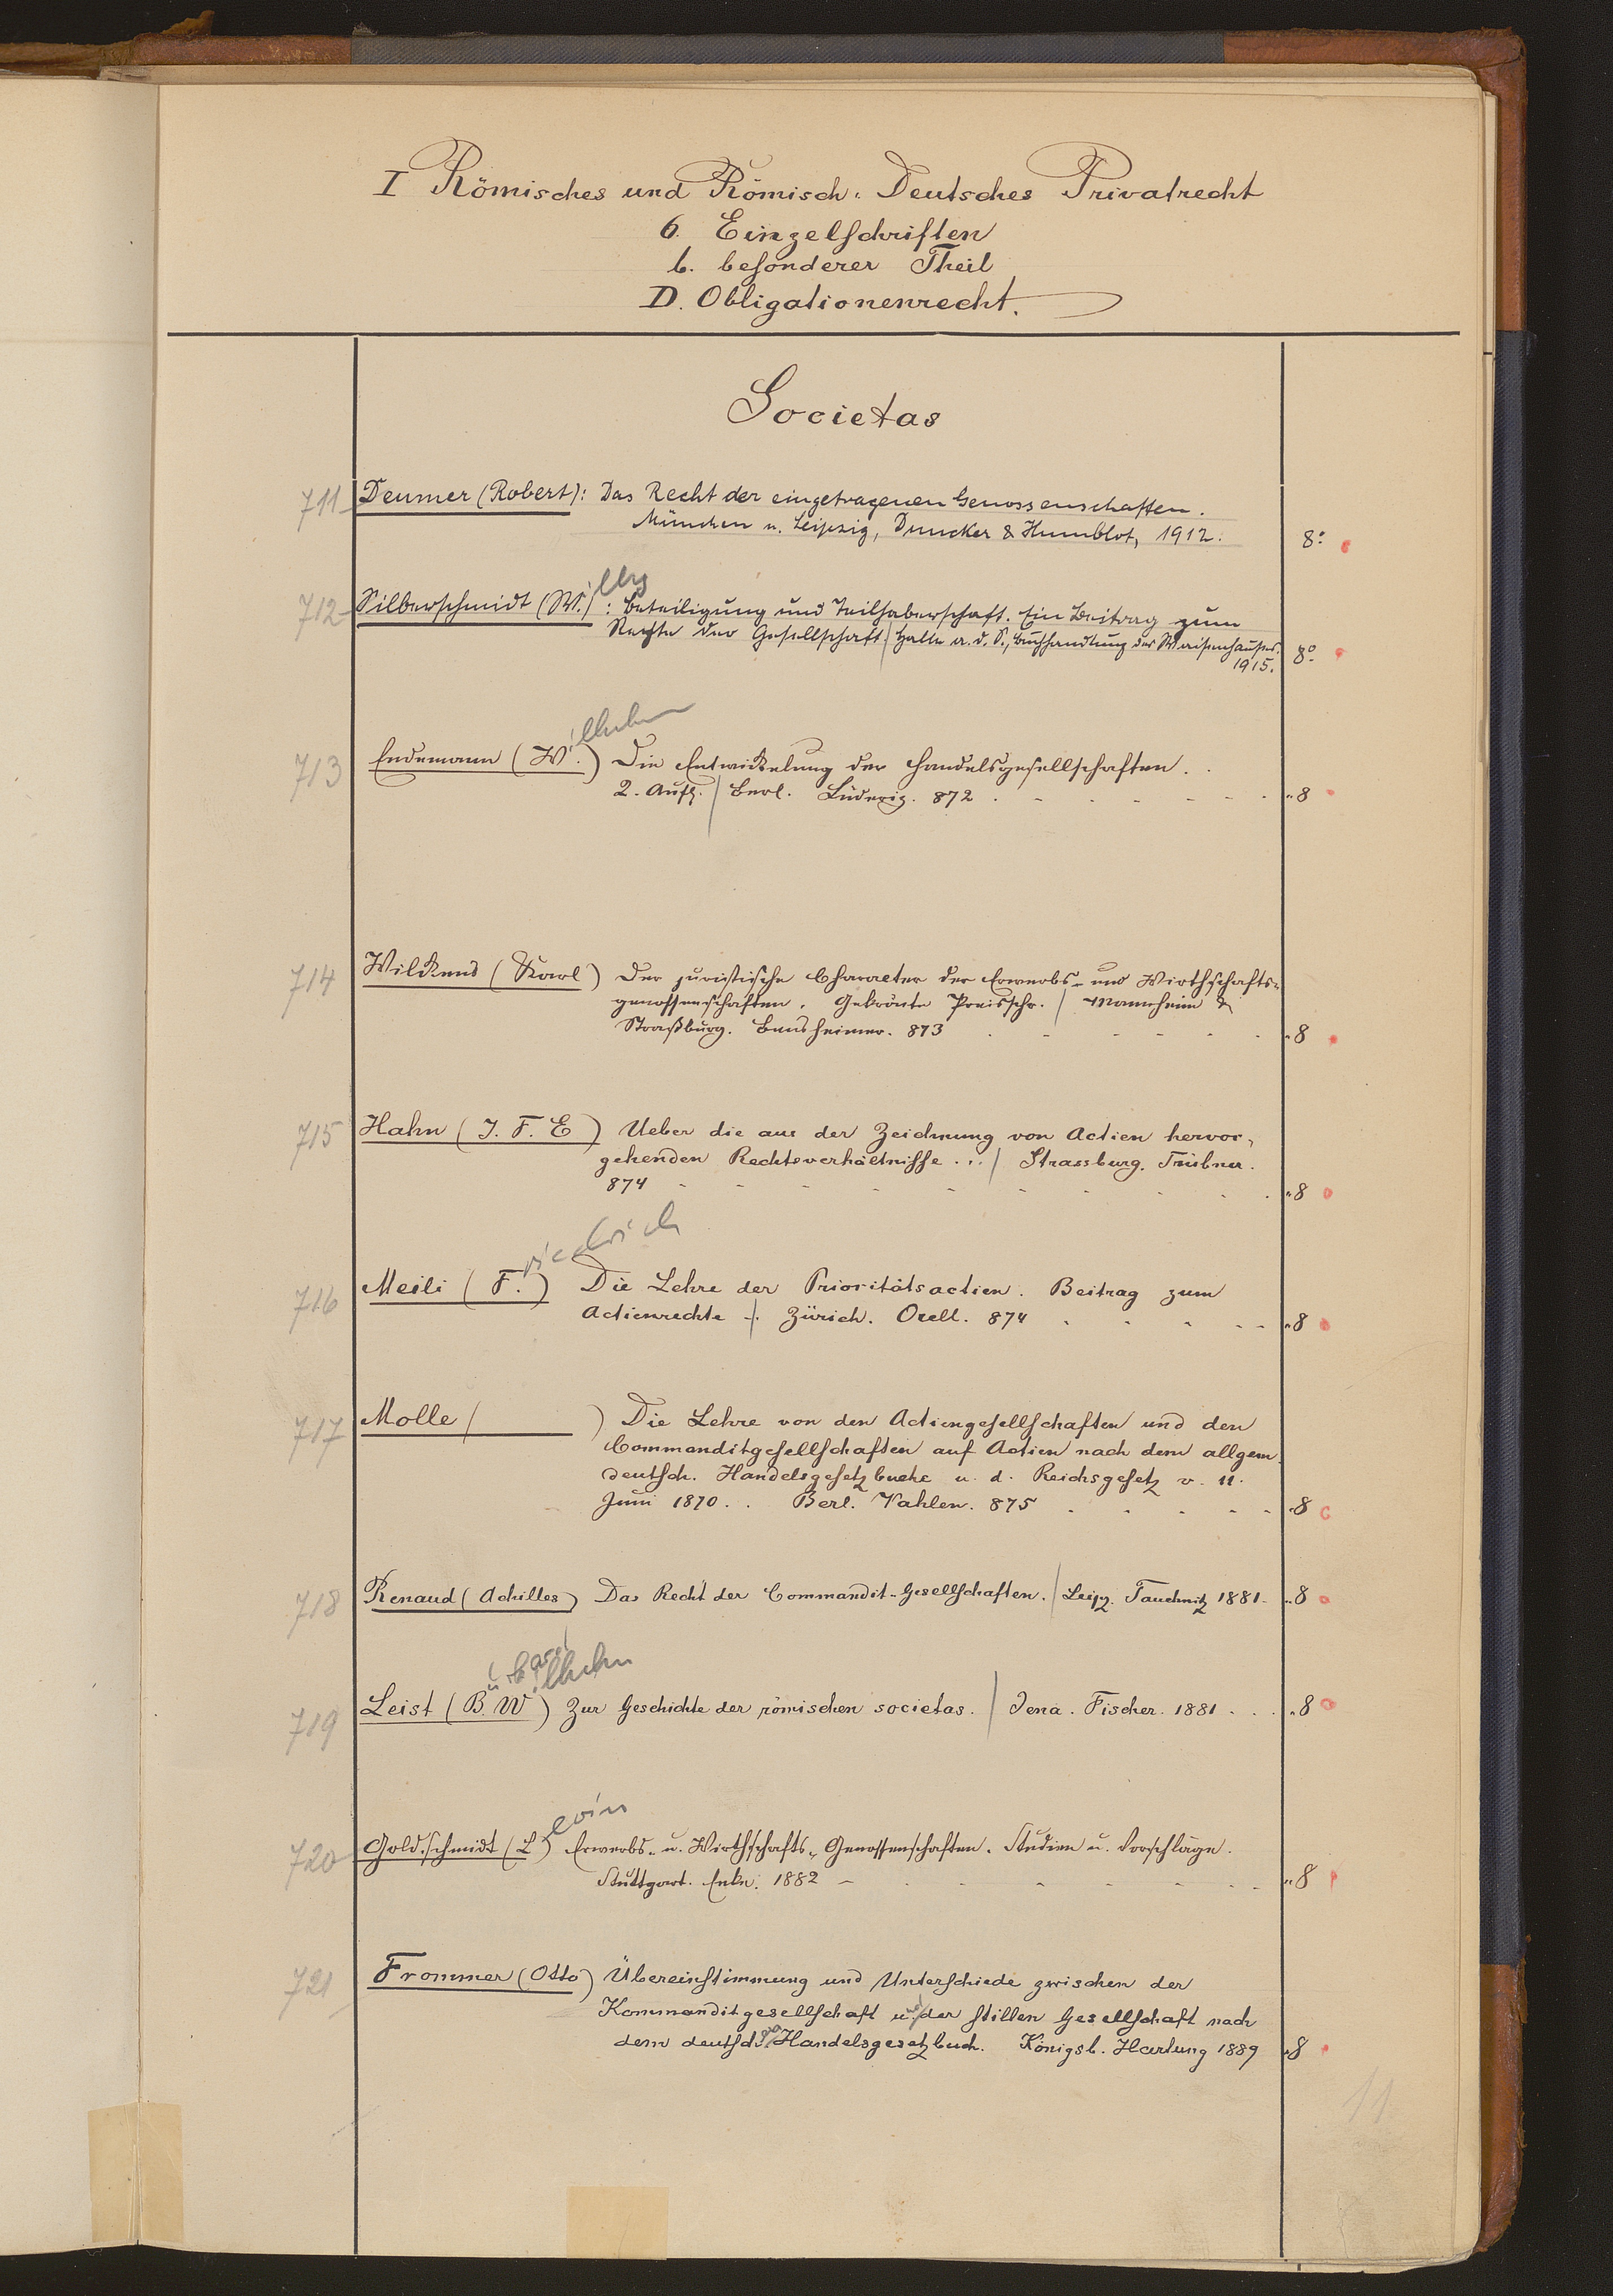 I Römisches und Römisch-Deutsches Privatrecht
6. Einzelschriften
b. besonderer Theil
D. Obligationenrecht.
Societas
711 Deumer (Robert): Das Recht der eingetragenen Genossenschaften.
München u. Leipzig, Duncker & Humblot, 1912. 8°
712 Silberschmidt (W.)illy: Beteiligung und Teilhaberschaft. Ein Beitrag zum
Rechte der Gesellschaft / Halle a. d. S., Buchhandlung des Waisenhauses. 8°
1915.
713 Endemann (W.)ilhelm Die Entwickelung der Handelsgesellschaften.
2. Aufl. / Berl. Lüderiz. 872 "8
714 Wilckens (Karl) Der juristische Character der Erwerbs- und Wirthschafts-
genossenschaften. Gekrönte Preisschr. / Mannheim &
Straßburg. Bensheimer. 873 "8
715 Hahn (J. F. E) Ueber die aus der Zeichnung von Actien hervor-
gehenden Rechtsverhältnisse ... / Strassburg. Trübner.
874 "8
716 Meili (F.)riedrich Die Lehre der Prioritätsactien. Beitrag zum
Actienrechte /. Zürich. Orell. 874 "8
717 Molle ( ) Die Lehre von den Actiengesellschaften und den
Commanditgesellschaften auf Actien nach dem allgem.
deutsch. Handelsgesetzbuche u. d. Reichsgesetz v. 11.
Juni 1870. . Berl. Vahlen. 875 "8
718 Renaud (Achilles) Das Recht der Commandit-Gesellschaften. / Leipz. Tauchnitz 1881 "8
719 Leist (B. W.)ilhelm Zur Geschichte der römischen societas. / Jena. Fischer. 1881 "8
720 Goldschmidt (L)evin Erwerbs- u. Wirthschafts-Genossenschaften. Studien u. Vorschläge.
Stuttgart. Enke. 1882 "8
721 Frommer (Otto) Übereinstimmung und Unterschiede zwischen der
Kommanditgesellschaft u. der stillen Gesellschaft nach
dem deutsch. Handelsgesetzbuch. Königsb. Hartung 1889 "8
11